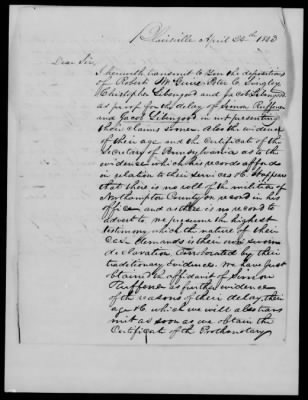 Blairsville April 24th 1843
Dear Sir,
I herewith transmit to you the depositions
of Robert McGuire Peter C. Longley
Christopher Libengood and Jacob Libengood
as proof for the delay of Simon Ruffner
and Jacob Libengood in not presenting
their claims sooner. Also the evidence
of their age and the Certificate of the
Secretary of Pennsylvania as to the
evidence which his records affords
in relation to their services. It appears
that there is no roll of the militia of
Northampton County on record in his
office and as there is no record to
advert to, we presume the highest
testimony which the nature of their
demands is their own sworn
declaration Corroborated by their
traditionary evidence. We have just
obtained the affidavit of Simon
Ruffner as further evidence
of the reasons of their delay, their
age &c which we will also trans
mit as soon as we obtain the
Certificate of the Prothonotary